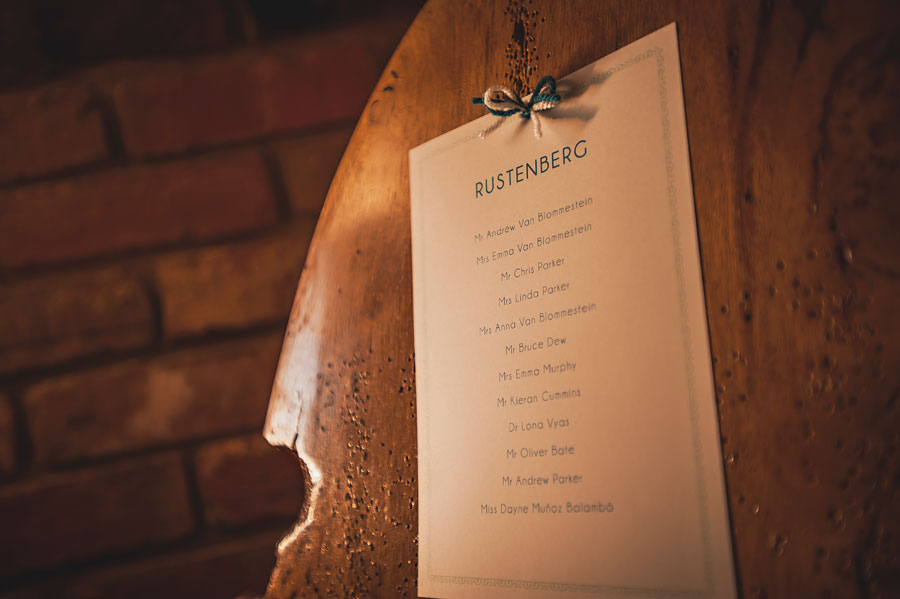 RUSTENBERG
Mr Andrew Van Blommestein
Mrs Emma Van Blommestein
Mr Chris Parker
Mrs Linda Parker
Mrs Anna Van Blommestein
Mr Bruce Dew
Mrs Emma Murphy
Mr Kieran Cummins
Dr Lona Vyas
Mr Oliver Bate
Mr Andrew Parker
Miss Dayne Muñoz Balambá